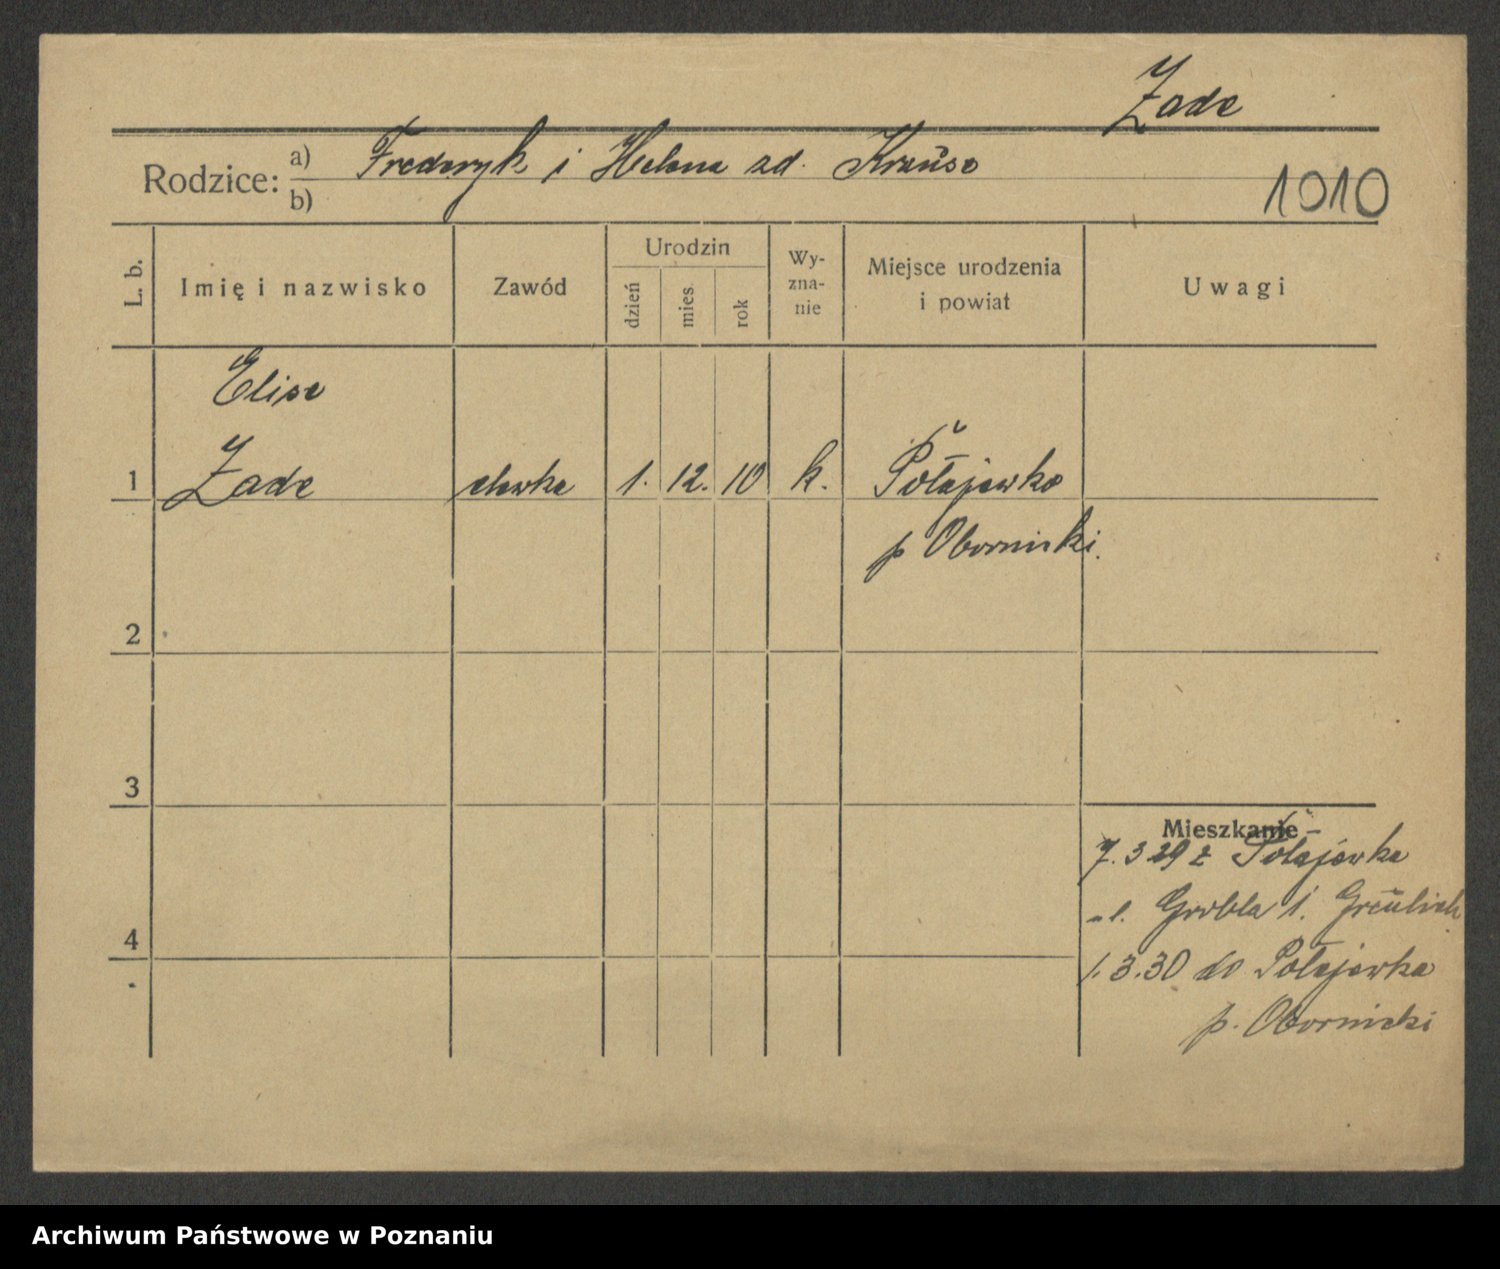 Zade
Rodzice: a) Frederyk i Helena zd. Krause
b)
1010
L. b.
Imię i nazwisko
Zawód
Urodzin
dzień
mies.
rok
Wy-
zna-
nie
Miejsce urodzenia
i powiat
Uwagi
Elise
1 Zade elewka 1. 12. 10 k. Połajewko
p Obornicki.
2
3
Mieszkanie
7. 3 29 z Połajewka
ul. Grobla 1. Greulich
4
1. 3. 30 do Połajewka
p. Obornicki
Archiwum Państwowe w Poznaniu